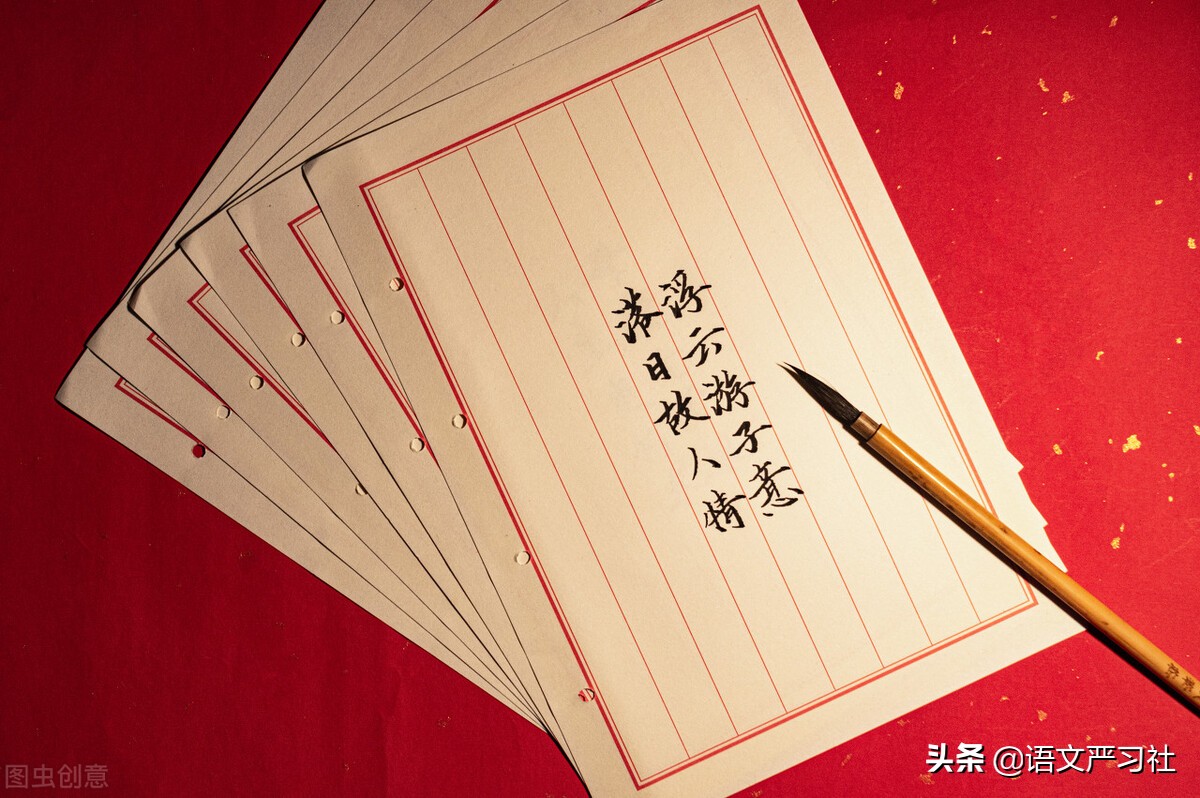 浮云游子意
落日故人情
头条 @语文严习社
图虫创意